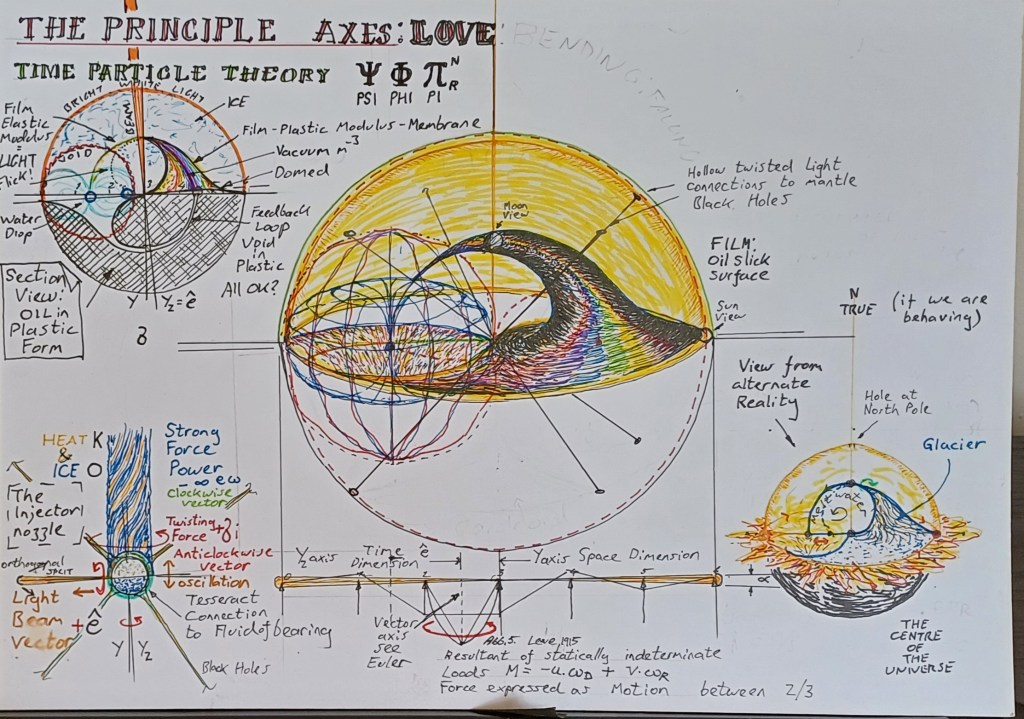 THE PRINCIPLE AXES: LOVE:
BENDING: FALLING
TIME PARTICLE THEORY
Ψ Φ π N R
PSI PHI PI
BRIGHT WHITE LIGHT
BEAM
ICE
Film
Elastic
Modulus
=
LIGHT
Flick!
VOID
Film-Plastic Modulus-Membrane
Vacuum m⁻³
Domed
Water
Drop
Feedback
Loop
Void
in
Plastic
All OK?
Section
View:
OIL in
Plastic
Form
Y Y/2 = ê
Moon
View
Hollow twisted Light
connections to mantle
Black Holes
FILM:
Oil slick
surface
Sun
View
N
TRUE (if we are
behaving)
View from
alternate
Reality
Hole at
North Pole
Glacier
Meltwater
THE
CENTRE
OF THE
UNIVERSE
HEAT K
&
ICE O
The
Injector
nozzle
Strong
Force
Power
-∞ ew
clockwise
vector
Twisting
Force
Anticlockwise
vector
oscillation
orthogonal
SPLIT
Light
Beam
Vector +ê
Tesseract
Connection
to Fluid of bearing
Y Y/2
Black Holes
Y/2 axis Time ê
Dimension
Y axis Space Dimension
Vector
axis
see
Euler
α
Abb.5. Love, 1915
Resultant of statically indeterminate
Loads M = -u.ωD + v.ωR
Force expressed as Motion between 2/3